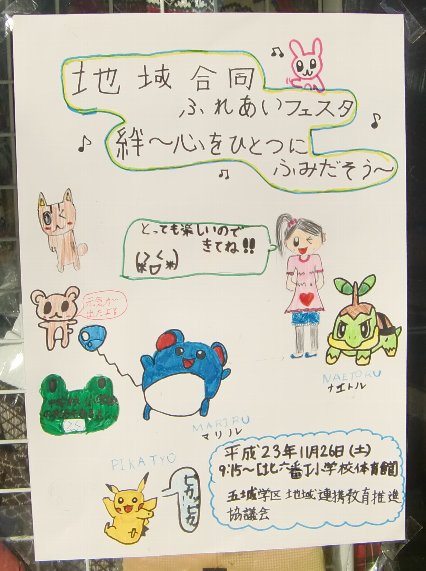 地域合同
ふれあいフェスタ
絆～心をひとつに
ふみだそう～
とっても楽しいので
きてね!!
元気が
出たよる
NAETORU
ナエトル
MARIRU
マリル
PIKATYU
ピカッピカ
平成23年11月26日(土)
9:15～【北六番丁小学校体育館】
五城学区地域連携教育推進
協議会